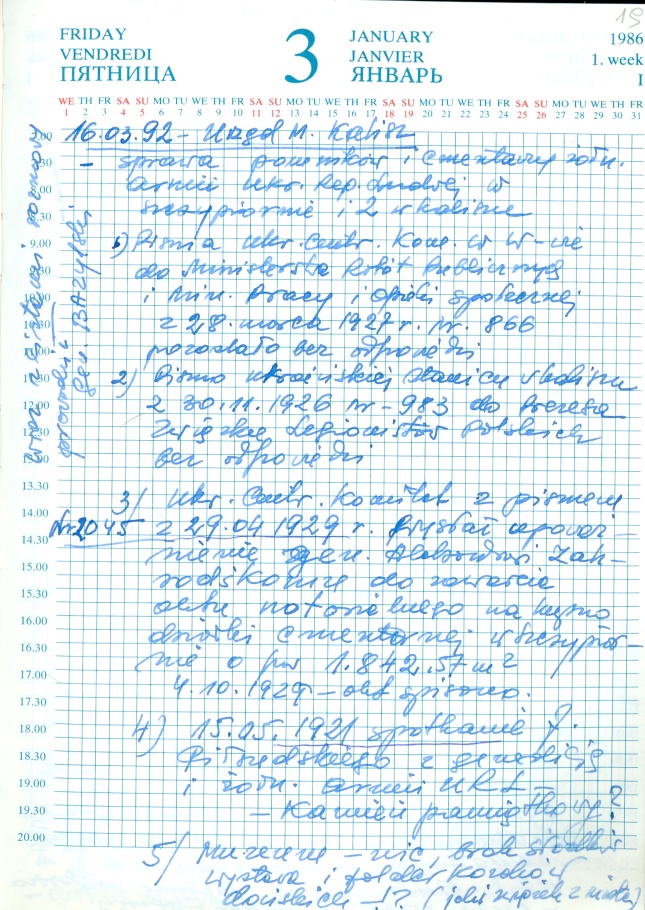 19
FRIDAY
VENDREDI
ПЯТНИЦА
3
JANUARY
JANVIER
ЯНВАРЬ
1986
1. week
I
WE TH FR SA SU MO TU WE TH FR SA SU MO TU WE TH FR SA SU MO TU WE TH FR SA SU MO TU WE TH FR
1 2 3 4 5 6 7 8 9 10 11 12 13 14 15 16 17 18 19 20 21 22 23 24 25 26 27 28 29 30 31
16.03.92 – Urząd M. Kalisz
– sprawa pomników i cmentarzy żołn.
armii Ukr. Rep. Ludowej w
Szczypiornie i 2 w Kaliszu
1) Pisma Ukr. Centr. Kom. w W-wie
do Ministerstwa Robót Publicznych
i Min. Pracy i Opieki Społecznej
z 28. marca 1927 r. nr. 866
pozostało bez odpowiedzi
2) Pismo ukraińskiej stanicy w Kaliszu
z 30.11.1926 nr – 983 do Prezesa
Związku Legionistów Polskich
bez odpowiedzi
3/ Ukr. Centr. Komitet z pismem
Nr 2045 z 29.04 1929 r. przysłał upoważ-
nienie gen. Aleksandrowi Zah-
rodskomu do zawarcia
aktu notarialnego na kupno
działki cmentarnej w Szczypior-
nie o pow 1.842,57 m²
4.10.1929 – akt spisano.
4) 15.05.1921 spotkanie J.
Piłsudskiego z generalicją
i żołn. armii URL –
– Kamień pamiątkowy?
5/ Muzeum – nic, brak środków
wystawa i
(jaki z miasta)
wraz z
prowadził
Gen. BAZYLSKI
9.00
9.30
10.00
10.30
11.00
11.30
12.00
12.30
13.00
13.30
14.00
14.30
15.00
15.30
16.00
16.30
17.00
17.30
18.00
18.30
19.00
19.30
20.00